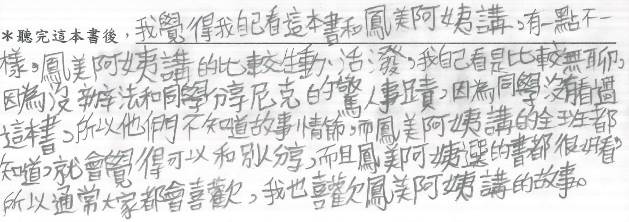 *聽完這本書後,我覺得我自己看這本書和鳳美阿姨講,有一點不一
樣。鳳美阿姨講的比較生動、活潑,我自己看是比較無聊,
因為沒辦法和同學分享尼克的驚人事蹟,因為同學沒有看過
這本書,所以他們不知道故事情節,而鳳美阿姨講的全班都
知道,就會覺得可以和別人分享,而且鳳美阿姨選的書都很好看,
所以通常大家都會喜歡,我也喜歡鳳美阿姨講的故事。